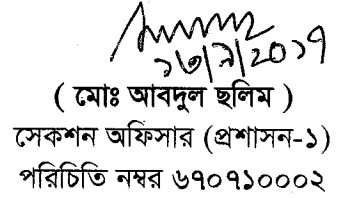 ১৩/৯/2০১৭
( মোঃ আবদুল ছলিম )
সেকশন অফিসার (প্রশাসন-১)
পরিচিতি নম্বর ৬৭০৭১০০০২